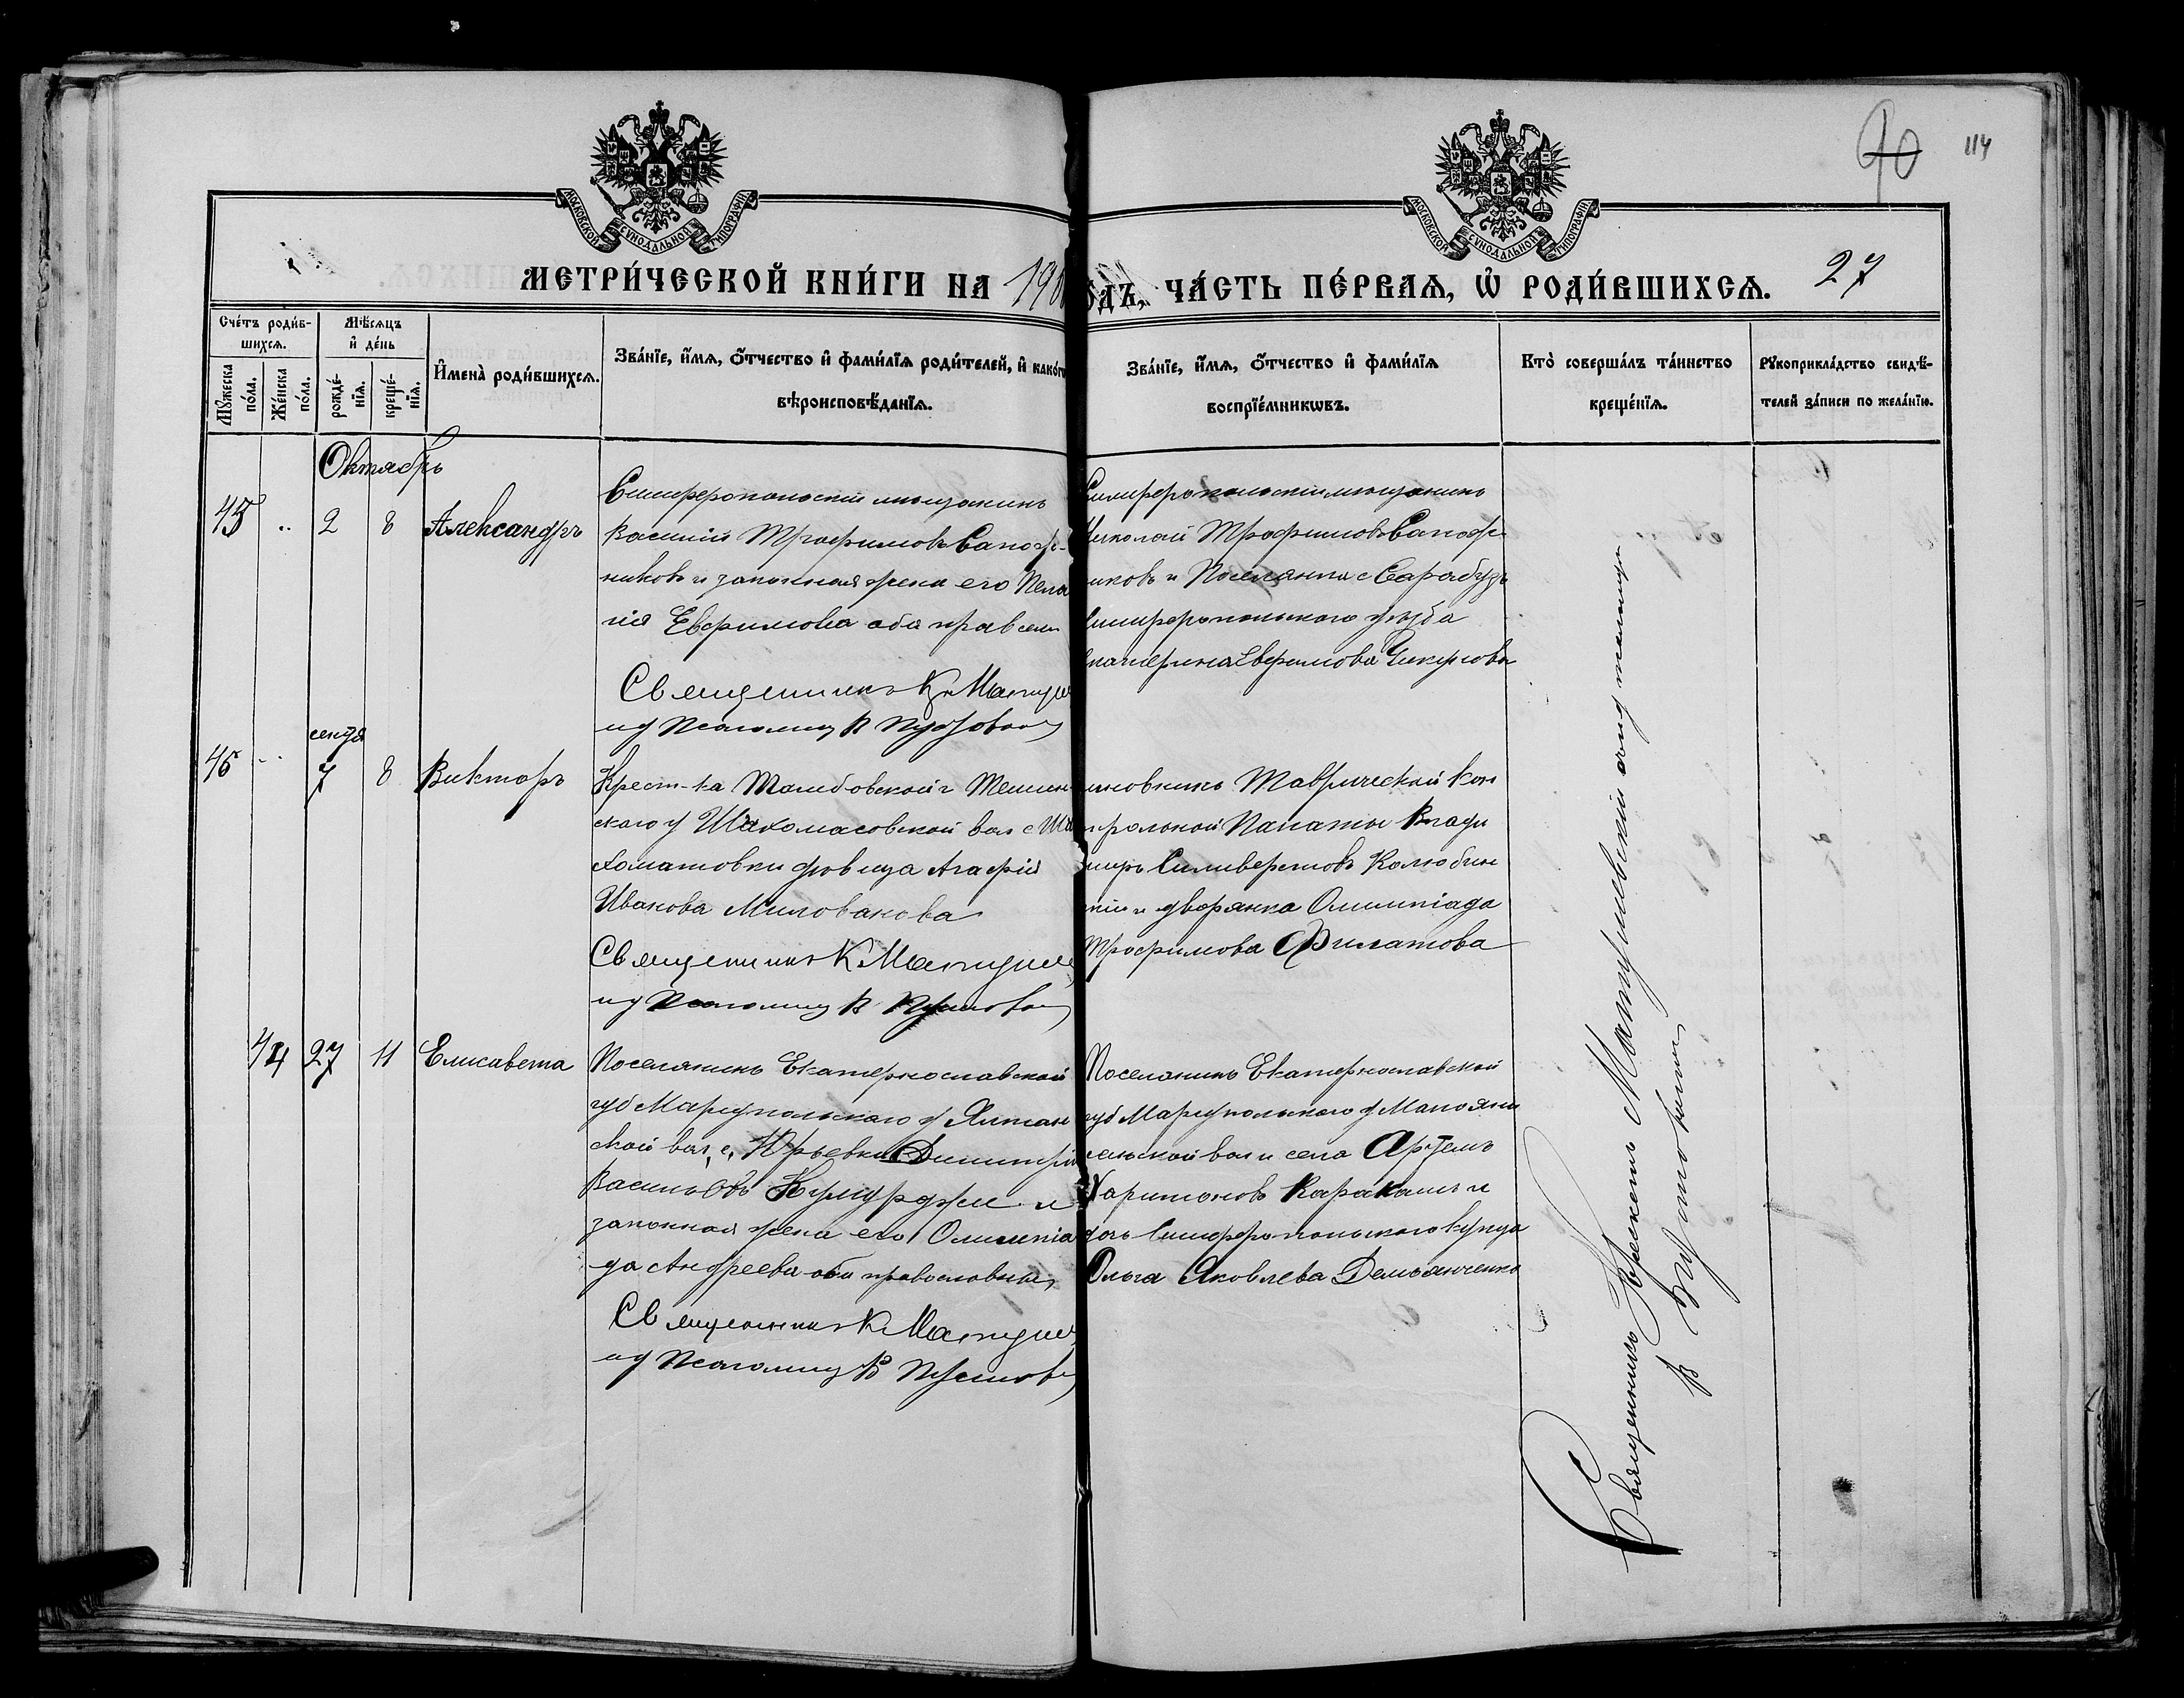 90
114
МОСКОВСКОЙ СѴНОДАЛЬНОЙ ТИПОГРАФІИ
МОСКОВСКОЙ СѴНОДАЛЬНОЙ ТИПОГРАФІИ
МЕТРИ́ЧЕСКОЙ КНИ́ГИ НА 190
ОДЪ, ЧА́СТЬ ПЕ́РВАѦ, Ѡ҆ РОДИ́ВШИХСѦ. 27
Сче́тъ роди́в-
шихсѧ.
Мꙋ́жеска по́ла.
Же́нска по́ла.
Мѣ́сѧцъ
и҆ де́нь
рожде́-
нїѧ.
креще́-
нїѧ.
И҆мена̀ роди́вшихсѧ.
Зва́нїе, и҆́мѧ, ѻ҆́тчество и҆ фами́лїѧ роди́телей, и҆ како́гѡ
вѣроисповѣ́данїѧ.
Зва́нїе, и҆́мѧ, ѻ҆́тчество и҆ фами́лїѧ
воспрїе́мникѡвъ.
Кто̀ соверша́лъ та́инство
креще́нїѧ.
Рꙋкоприкла́дство свидѣ́-
телей за́писи по жела́нїю.
Октябрь
45 .. 2 8 Александръ
Симферопольскій мѣщанинъ
Василій Трофимовъ Сапож-
никовъ и законная жена его Пела
гія Евфимова оба правосл
Священникъ К Мангуш
ид Псаломщ В
Симферопольскій мѣщанинъ
Николай Трофимовъ Сапож
никовъ и Поселянка с Сарабузъ
Симферопольскаго уѣзда
Екатерина Евфимова
сентя
46 .. 7 8 Викторъ
Крест-ка Тамбовской г Темни
скаго у Шахомасовской вол с Ша
хоматовки дѣвица Агафія
Иванова Милованова
Священникъ К Мангуш
ид Псаломщ В
иновникъ Таврической Кон
трольной Палаты Влади
миръ Сильверстовъ
кій и дворянка Олимпіада
Трофимова Филатова
44 27 11 Елисавета
Поселянинъ Екатеринославской
губ Маріупольскаго у Ялтин
ской вол, с, Юрьевки Димитрій
Васильевъ и
законная жена его Олимпіа
да Андреева оба православные
Священникъ К Мангуш
ид Псаломщ В
Поселянинъ Екатеринославской
губ Маріупольскаго у Малоян
сольской вол и села Артемъ
Харитоновъ Каракашъ и
дочь Симферопольскаго купца
Ольга Яковлева Демьянченко
Священникъ